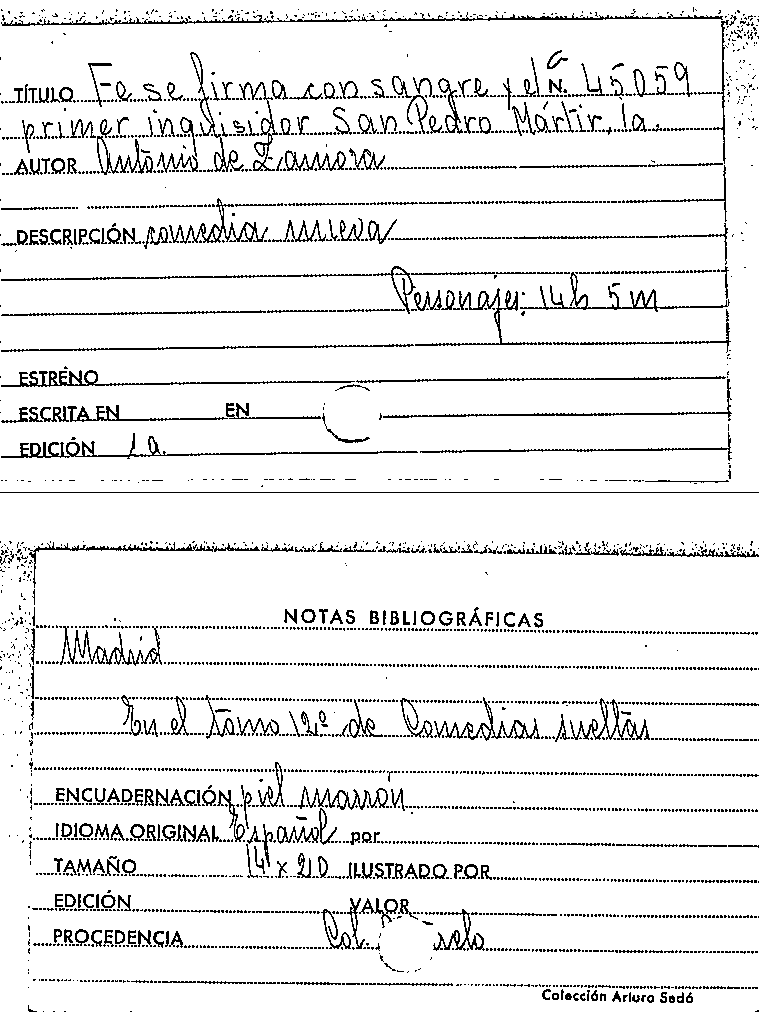 TÍTULO Fe se firma con sangre y el N. 45059
primer inquisidor San Pedro Mártir, la.
AUTOR Antonio de Zamora
DESCRIPCIÓN comedia nueva
Personajes: 14 h 5 m
ESTRENO
ESCRITA EN EN
EDICIÓN 1a.
NOTAS BIBLIOGRÁFICAS
Madrid
En el tomo 12º de Comedias sueltas
ENCUADERNACIÓN piel marrón
IDIOMA ORIGINAL Español por
TAMAÑO 14 x 20 ILUSTRADO POR
EDICIÓN VALOR
PROCEDENCIA Col.
Colección Arturo Sedó